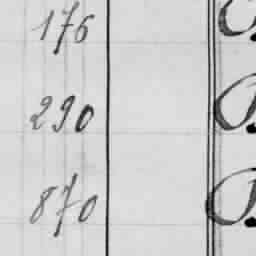 176
290
870